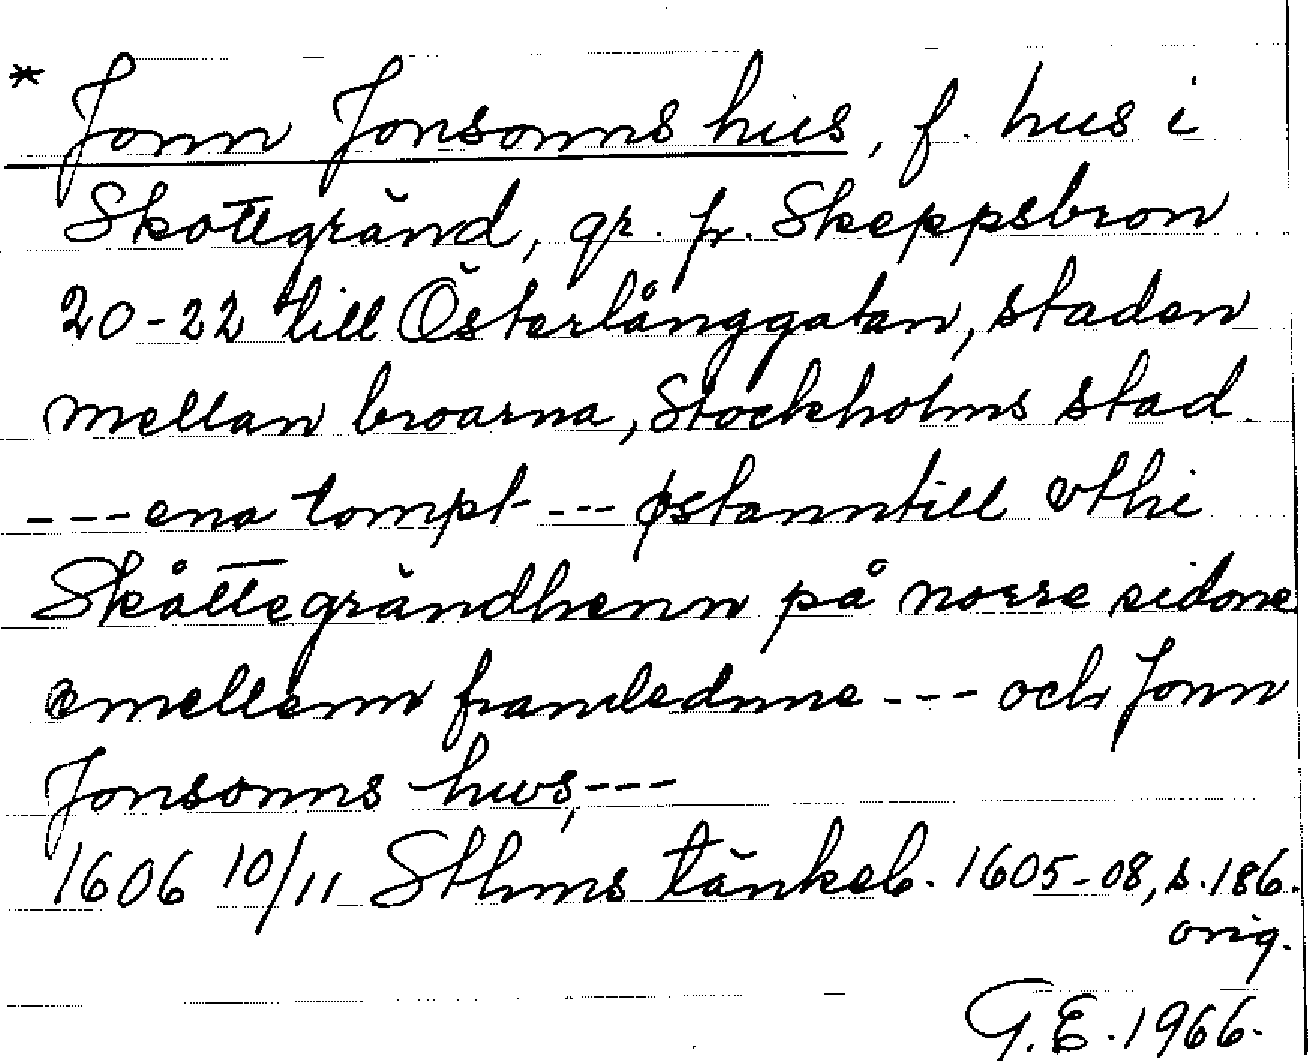 * Jonn Jonsonns hus, f. hus i
Skottgränd, gr. fr. Skeppsbron
20-22 till Österlånggatan, staden
mellan broarna, Stockholms stad.
---ena tompt --- østanntill vthi
Skåttegrändhenn på norre sidone
emellenn framlednne --- och Jonn
Jonsonns hws, ---
1606 10/11 Sthms tänkeb. 1605-08, s. 186.
orig.
G.E. 1966.